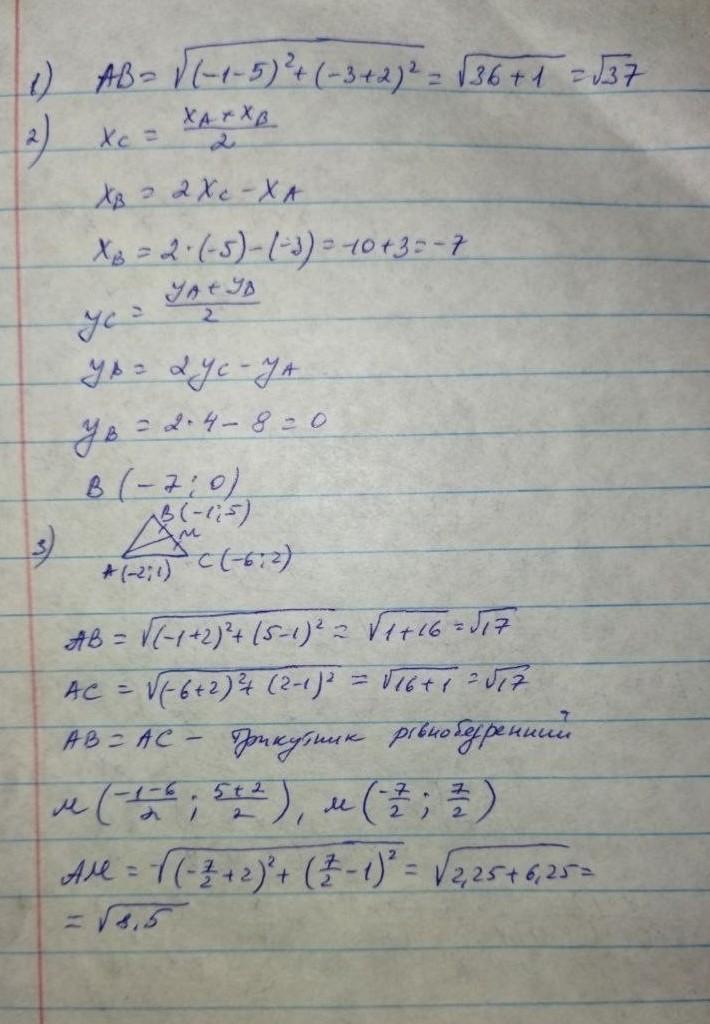 1) AB = √((-1-5)²+(-3+2)²) = √(36+1) = √37
2) x_C = (x_A + x_B)/2
x_B = 2x_C - x_A
x_B = 2·(-5)-(-3) = -10+3 = -7
y_C = (y_A + y_B)/2
y_B = 2y_C - y_A
y_B = 2·4 - 8 = 0
B (-7; 0)
3) B(-1;5)
M
A(-2;1) C(-6;2)
AB = √((-1+2)²+(5-1)²) = √(1+16) = √17
AC = √((-6+2)²+(2-1)²) = √(16+1) = √17
AB = AC - трикутник рівнобедренний
M((-1-6)/2; (5+2)/2), M(-7/2; 7/2)
AM = √((-7/2+2)²+(7/2-1)²) = √(2,25+6,25) =
= √8,5